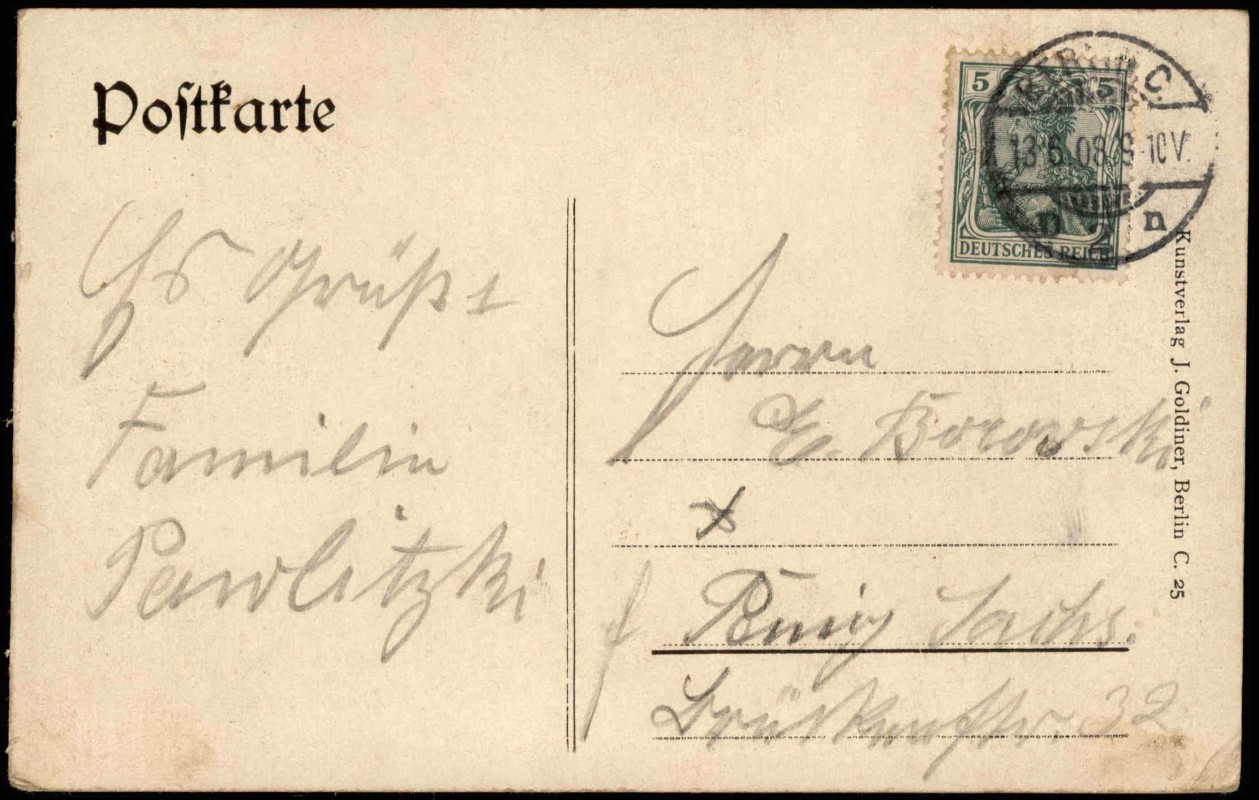 Postkarte
5 5
DEUTSCHES REICH
BERLIN C.
13.6.08.9-10V.
n n
Es Grüßt
Familie
Pawlitzki
Herrn
E. Borowski
Penig Sachs.
Brückenstr. 32
Kunstverlag J. Goldiner, Berlin C. 25